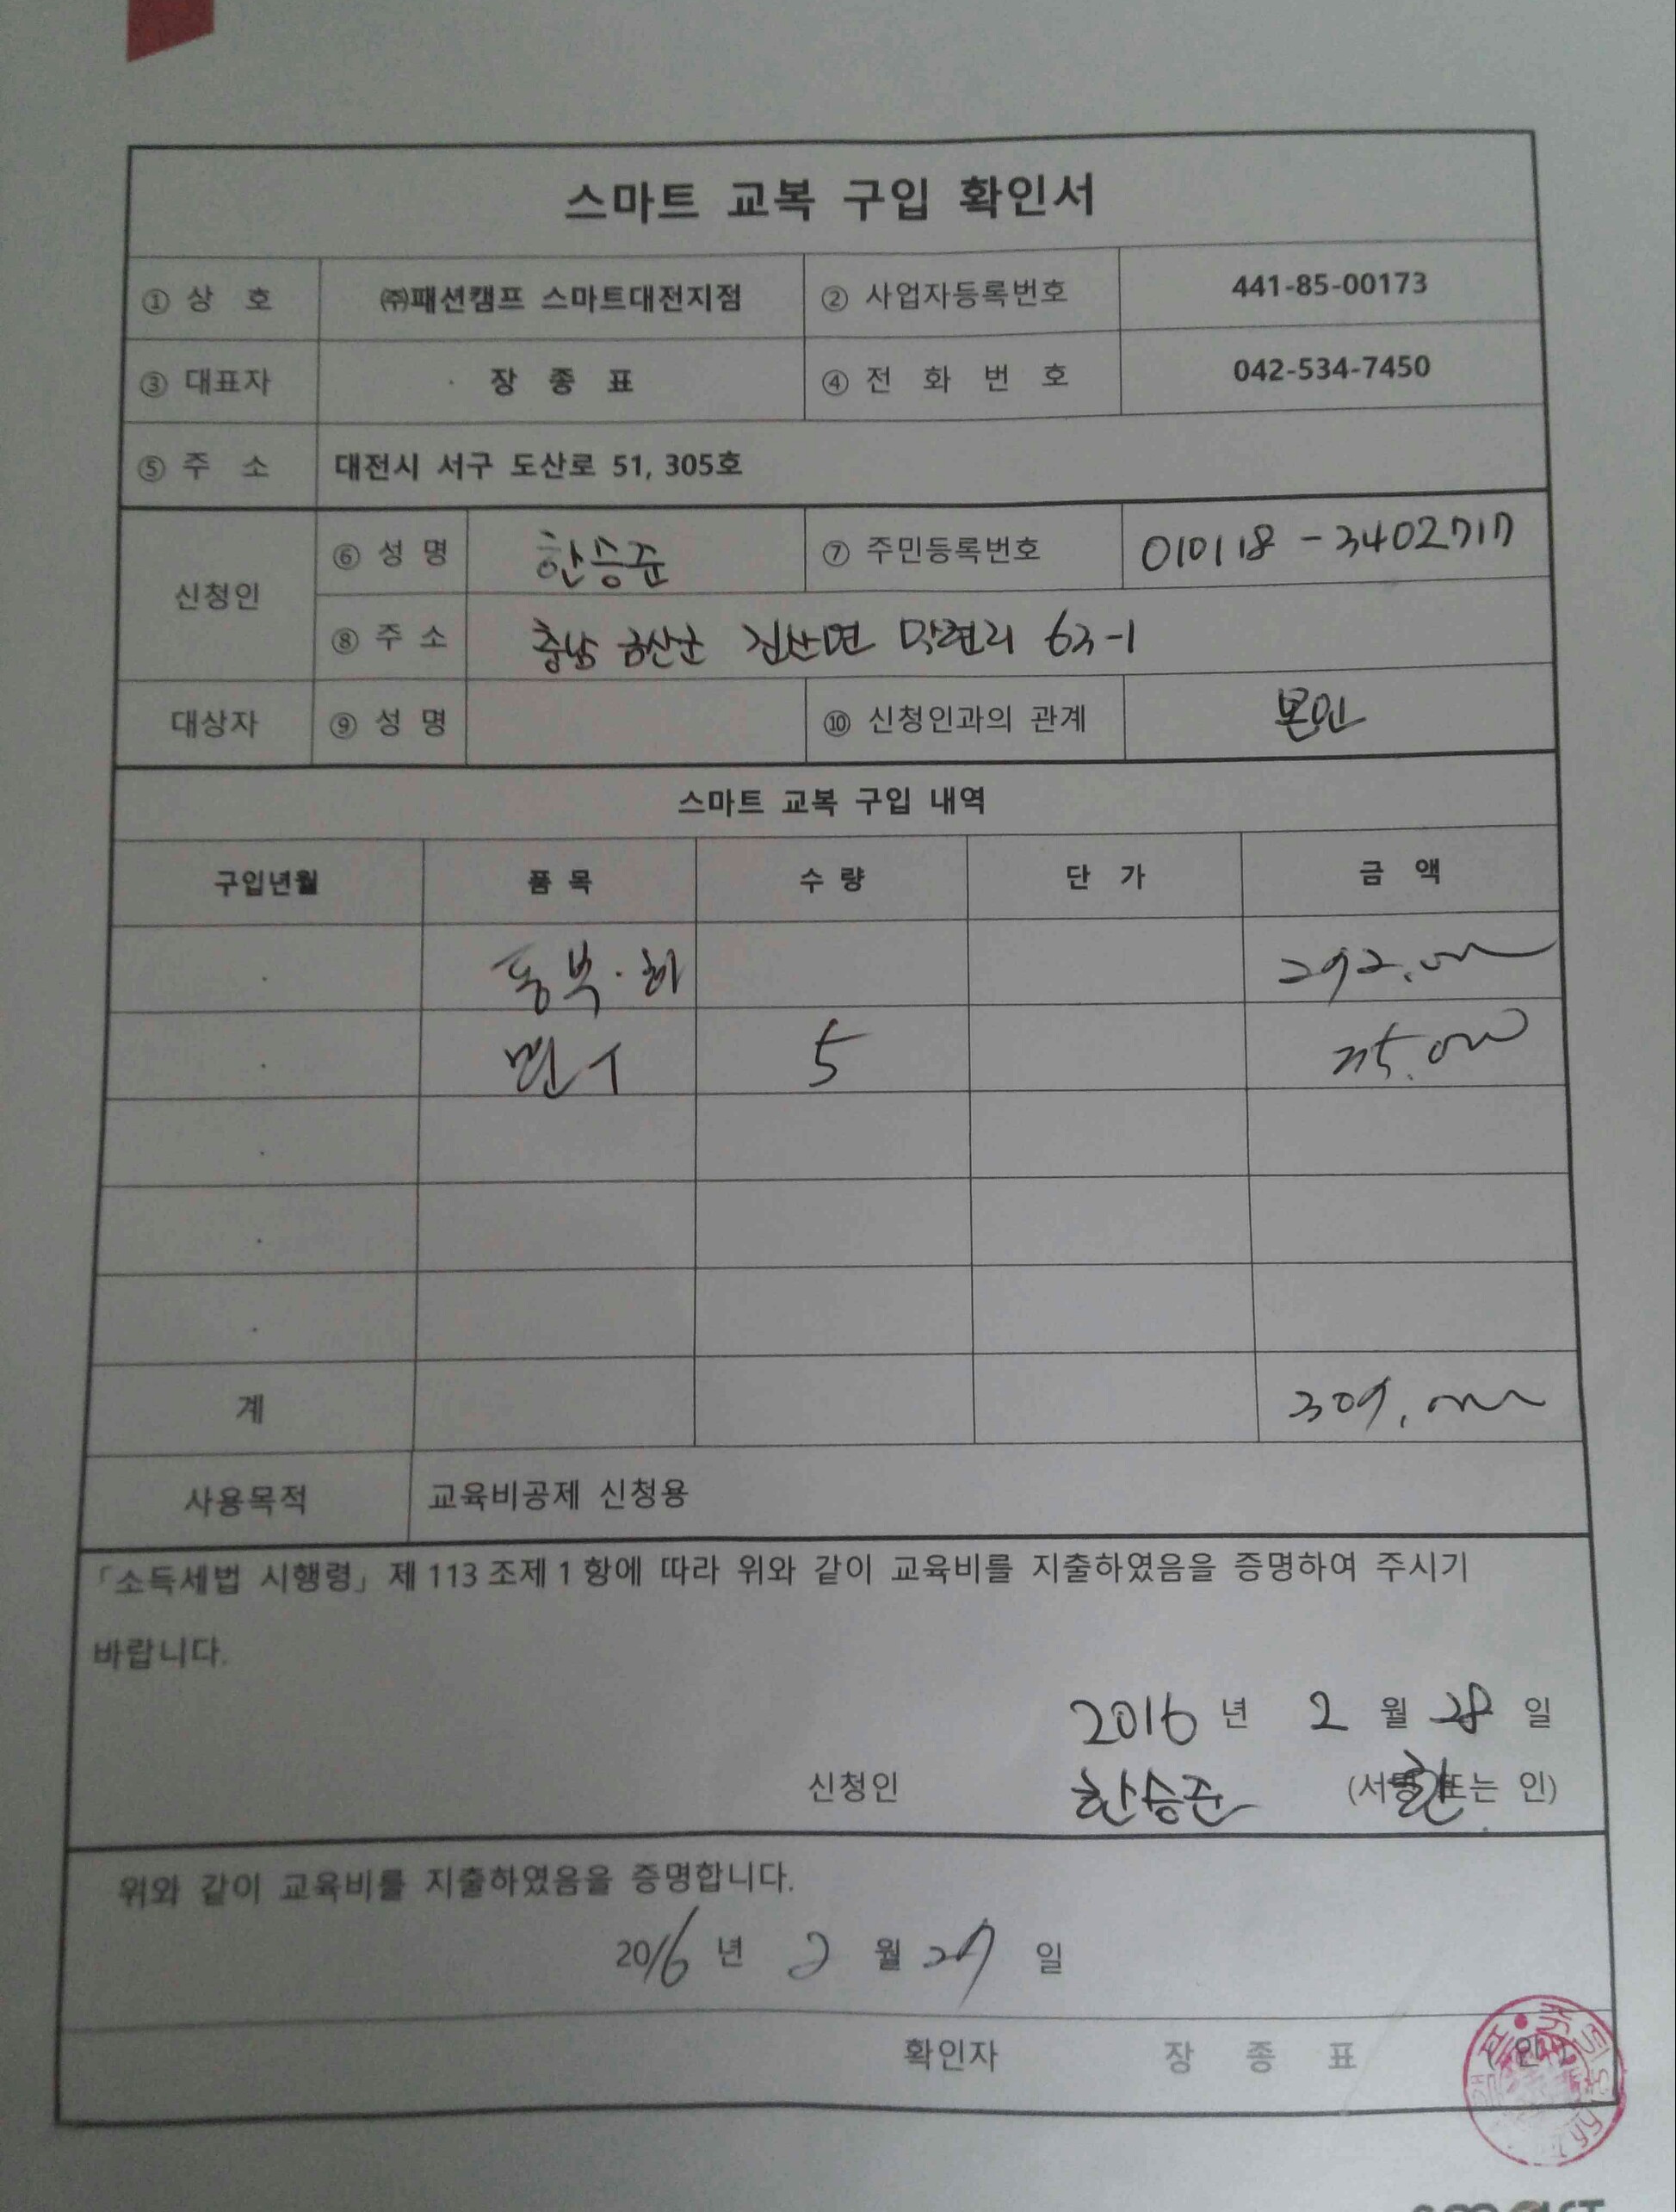 스마트 교복 구입 확인서
① 상 호 ㈜패션캠프 스마트대전지점 ② 사업자등록번호 441-85-00173
③ 대표자 장 종 표 ④ 전 화 번 호 042-534-7450
⑤ 주 소 대전시 서구 도산로 51, 305호
신청인 ⑥ 성 명 한승준 ⑦ 주민등록번호 010118 - 3402717
⑧ 주 소 충남 금산군 진산면 막현리 63-1
대상자 ⑨ 성 명 ⑩ 신청인과의 관계 본인
스마트 교복 구입 내역
구입년월 품 목 수 량 단 가 금 액
동복·하 292.000
5 000
계 309,000
사용목적 교육비공제 신청용
「소득세법 시행령」제 113 조제 1 항에 따라 위와 같이 교육비를 지출하였음을 증명하여 주시기
바랍니다.
2016 년 2 월 28 일
신청인 한승준 (서명 또는 인)
위와 같이 교육비를 지출하였음을 증명합니다.
2016 년 2 월 27 일
확인자 장 종 표 인